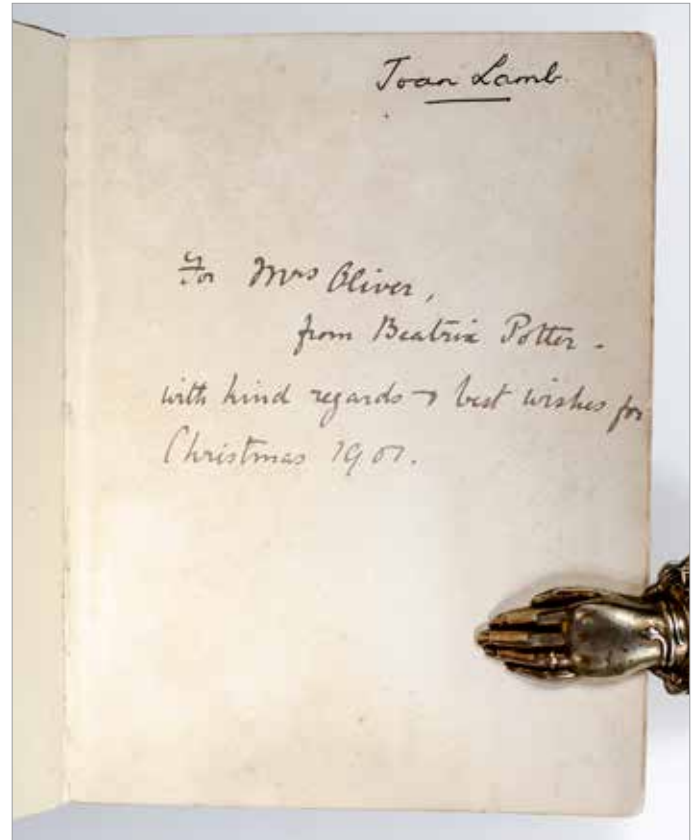 Joan Lamb
For Mrs Oliver,
from Beatrix Potter -
with kind regards & best wishes for
Christmas 1901.